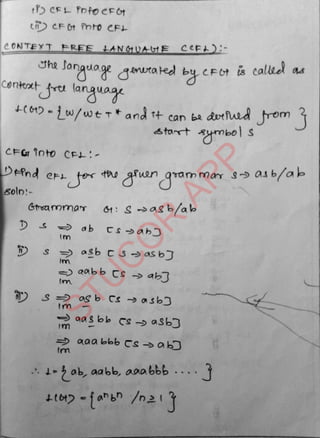 (i) CFL into CFG
(ii) CFG into CFL
CONTEXT FREE LANGUAGE (CFL):-
The language generated by CFG is called as
context free language
L(G) = {w/w ∈ T* and it can be derived from
start symbol S}
CFG into CFL:-
1) Find CFL for the given grammar S→aSb/ab
Soln:-
Grammar G: S→aSb/ab
i) S ⇒lm ab [S→ab]
ii) S ⇒lm aSb [S→aSb]
⇒lm aabb [S→ab]
iii) S ⇒lm aSb [S→aSb]
⇒lm aaSbb [S→aSb]
⇒lm aaabbb [S→ab]
∴ L={ab, aabb, aaabbb ....}
L(G) = {aⁿbⁿ /n≥1}
STUCOR APP